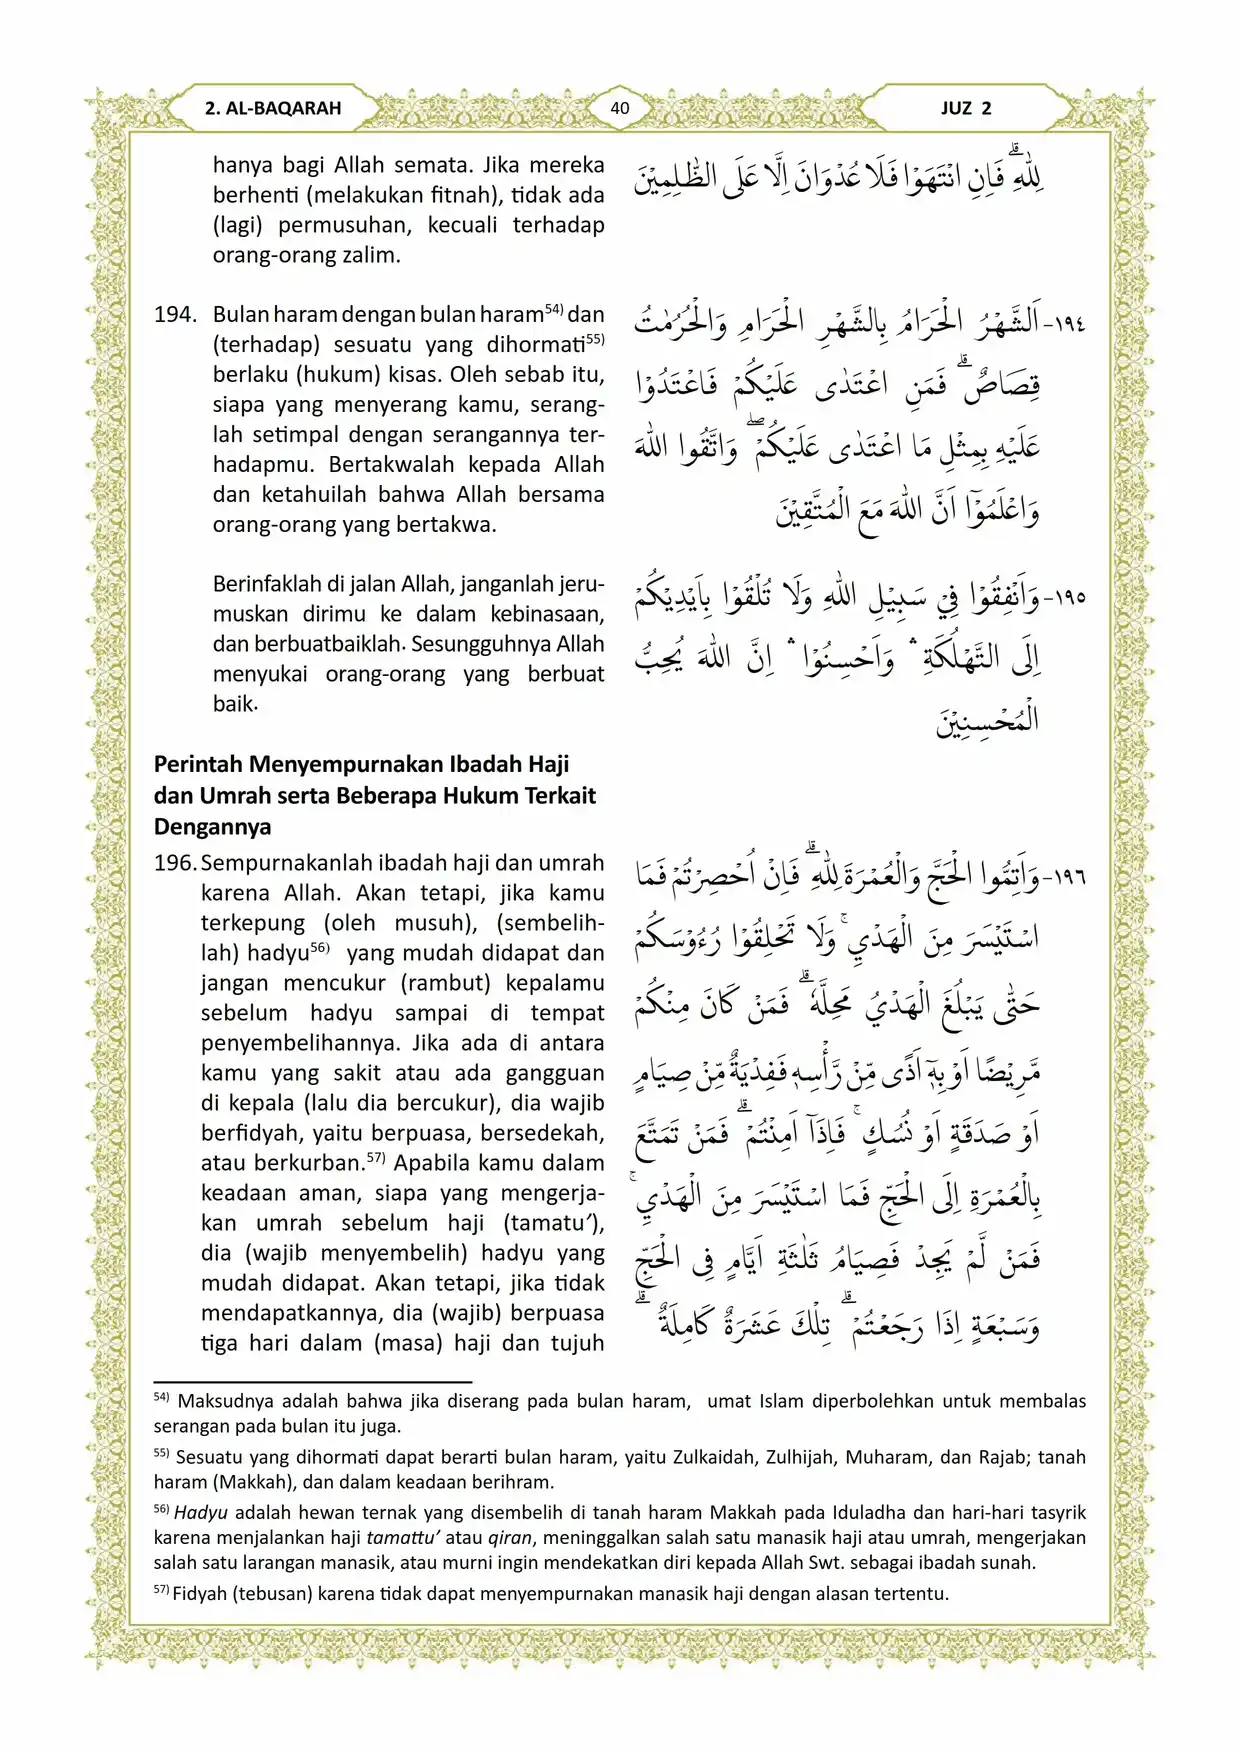 2. AL-BAQARAH
40
JUZ 2
hanya bagi Allah semata. Jika mereka
berhenti (melakukan fitnah), tidak ada
(lagi) permusuhan, kecuali terhadap
orang-orang zalim.
لِلّٰهِ ۗ فَاِنِ انْتَهَوْا فَلَا عُدْوَانَ اِلَّا عَلَى الظّٰلِمِيْنَ
194. Bulan haram dengan bulan haram54) dan
(terhadap) sesuatu yang dihormati55)
berlaku (hukum) kisas. Oleh sebab itu,
siapa yang menyerang kamu, serang-
lah setimpal dengan serangannya ter-
hadapmu. Bertakwalah kepada Allah
dan ketahuilah bahwa Allah bersama
orang-orang yang bertakwa.
١٩٤- اَلشَّهْرُ الْحَرَامُ بِالشَّهْرِ الْحَرَامِ وَالْحُرُمٰتُ
قِصَاصٌۗ فَمَنِ اعْتَدٰى عَلَيْكُمْ فَاعْتَدُوْا
عَلَيْهِ بِمِثْلِ مَا اعْتَدٰى عَلَيْكُمْ ۖ وَاتَّقُوا اللّٰهَ
وَاعْلَمُوْٓا اَنَّ اللّٰهَ مَعَ الْمُتَّقِيْنَ
Berinfaklah di jalan Allah, janganlah jeru-
muskan dirimu ke dalam kebinasaan,
dan berbuatbaiklah. Sesungguhnya Allah
menyukai orang-orang yang berbuat
baik.
١٩٥- وَاَنْفِقُوْا فِيْ سَبِيْلِ اللّٰهِ وَلَا تُلْقُوْا بِاَيْدِيْكُمْ
اِلَى التَّهْلُكَةِ ۛ وَاَحْسِنُوْا ۛ اِنَّ اللّٰهَ يُحِبُّ
الْمُحْسِنِيْنَ
Perintah Menyempurnakan Ibadah Haji
dan Umrah serta Beberapa Hukum Terkait
Dengannya
196. Sempurnakanlah ibadah haji dan umrah
karena Allah. Akan tetapi, jika kamu
terkepung (oleh musuh), (sembelih-
lah) hadyu56) yang mudah didapat dan
jangan mencukur (rambut) kepalamu
sebelum hadyu sampai di tempat
penyembelihannya. Jika ada di antara
kamu yang sakit atau ada gangguan
di kepala (lalu dia bercukur), dia wajib
berfidyah, yaitu berpuasa, bersedekah,
atau berkurban.57) Apabila kamu dalam
keadaan aman, siapa yang mengerja-
kan umrah sebelum haji (tamatu’),
dia (wajib menyembelih) hadyu yang
mudah didapat. Akan tetapi, jika tidak
mendapatkannya, dia (wajib) berpuasa
tiga hari dalam (masa) haji dan tujuh
١٩٦- وَاَتِمُّوا الْحَجَّ وَالْعُمْرَةَ لِلّٰهِ ۗ فَاِنْ اُحْصِرْتُمْ فَمَا
اسْتَيْسَرَ مِنَ الْهَدْيِۚ وَلَا تَحْلِقُوْا رُءُوْسَكُمْ
حَتّٰى يَبْلُغَ الْهَدْيُ مَحِلَّهٗ ۗ فَمَنْ كَانَ مِنْكُمْ
مَّرِيْضًا اَوْ بِهٖٓ اَذًى مِّنْ رَّأْسِهٖ فَفِدْيَةٌ مِّنْ صِيَامٍ
اَوْ صَدَقَةٍ اَوْ نُسُكٍ ۚ فَاِذَآ اَمِنْتُمْ ۗ فَمَنْ تَمَتَّعَ
بِالْعُمْرَةِ اِلَى الْحَجِّ فَمَا اسْتَيْسَرَ مِنَ الْهَدْيِۚ
فَمَنْ لَّمْ يَجِدْ فَصِيَامُ ثَلٰثَةِ اَيَّامٍ فِى الْحَجِّ
وَسَبْعَةٍ اِذَا رَجَعْتُمْ ۗ تِلْكَ عَشَرَةٌ كَامِلَةٌ ۗ
54) Maksudnya adalah bahwa jika diserang pada bulan haram, umat Islam diperbolehkan untuk membalas
serangan pada bulan itu juga.
55) Sesuatu yang dihormati dapat berarti bulan haram, yaitu Zulkaidah, Zulhijah, Muharam, dan Rajab; tanah
haram (Makkah), dan dalam keadaan berihram.
56) Hadyu adalah hewan ternak yang disembelih di tanah haram Makkah pada Iduladha dan hari-hari tasyrik
karena menjalankan haji tamattu’ atau qiran, meninggalkan salah satu manasik haji atau umrah, mengerjakan
salah satu larangan manasik, atau murni ingin mendekatkan diri kepada Allah Swt. sebagai ibadah sunah.
57) Fidyah (tebusan) karena tidak dapat menyempurnakan manasik haji dengan alasan tertentu.